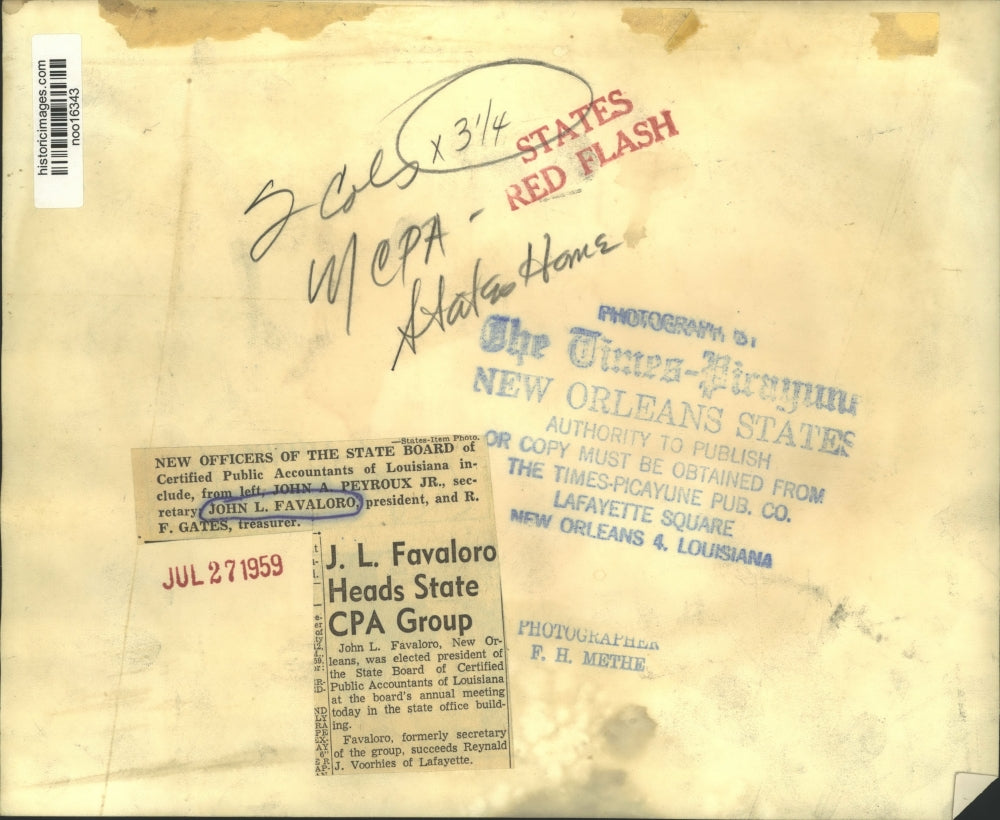 historicimages.com
noo16343
2 Cols x 3 1/4
STATES
RED FLASH
CPA -
States Home
PHOTOGRAPH BY
The Times-Picayune
NEW ORLEANS STATES
AUTHORITY TO PUBLISH
OR COPY MUST BE OBTAINED FROM
THE TIMES-PICAYUNE PUB. CO.
LAFAYETTE SQUARE
NEW ORLEANS 4, LOUISIANA
—States-Item Photo.
NEW OFFICERS OF THE STATE BOARD of
Certified Public Accountants of Louisiana in-
clude, from left, JOHN A. PEYROUX JR., sec-
retary, JOHN L. FAVALORO, president, and R.
F. GATES, treasurer.
JUL 27 1959
J. L. Favaloro
Heads State
CPA Group
John L. Favaloro, New Or-
leans, was elected president of
the State Board of Certified
Public Accountants of Louisiana
at the board's annual meeting
today in the state office build-
ing.
Favaloro, formerly secretary
of the group, succeeds Reynald
J. Voorhies of Lafayette.
PHOTOGRAPHER
F. H. METHE